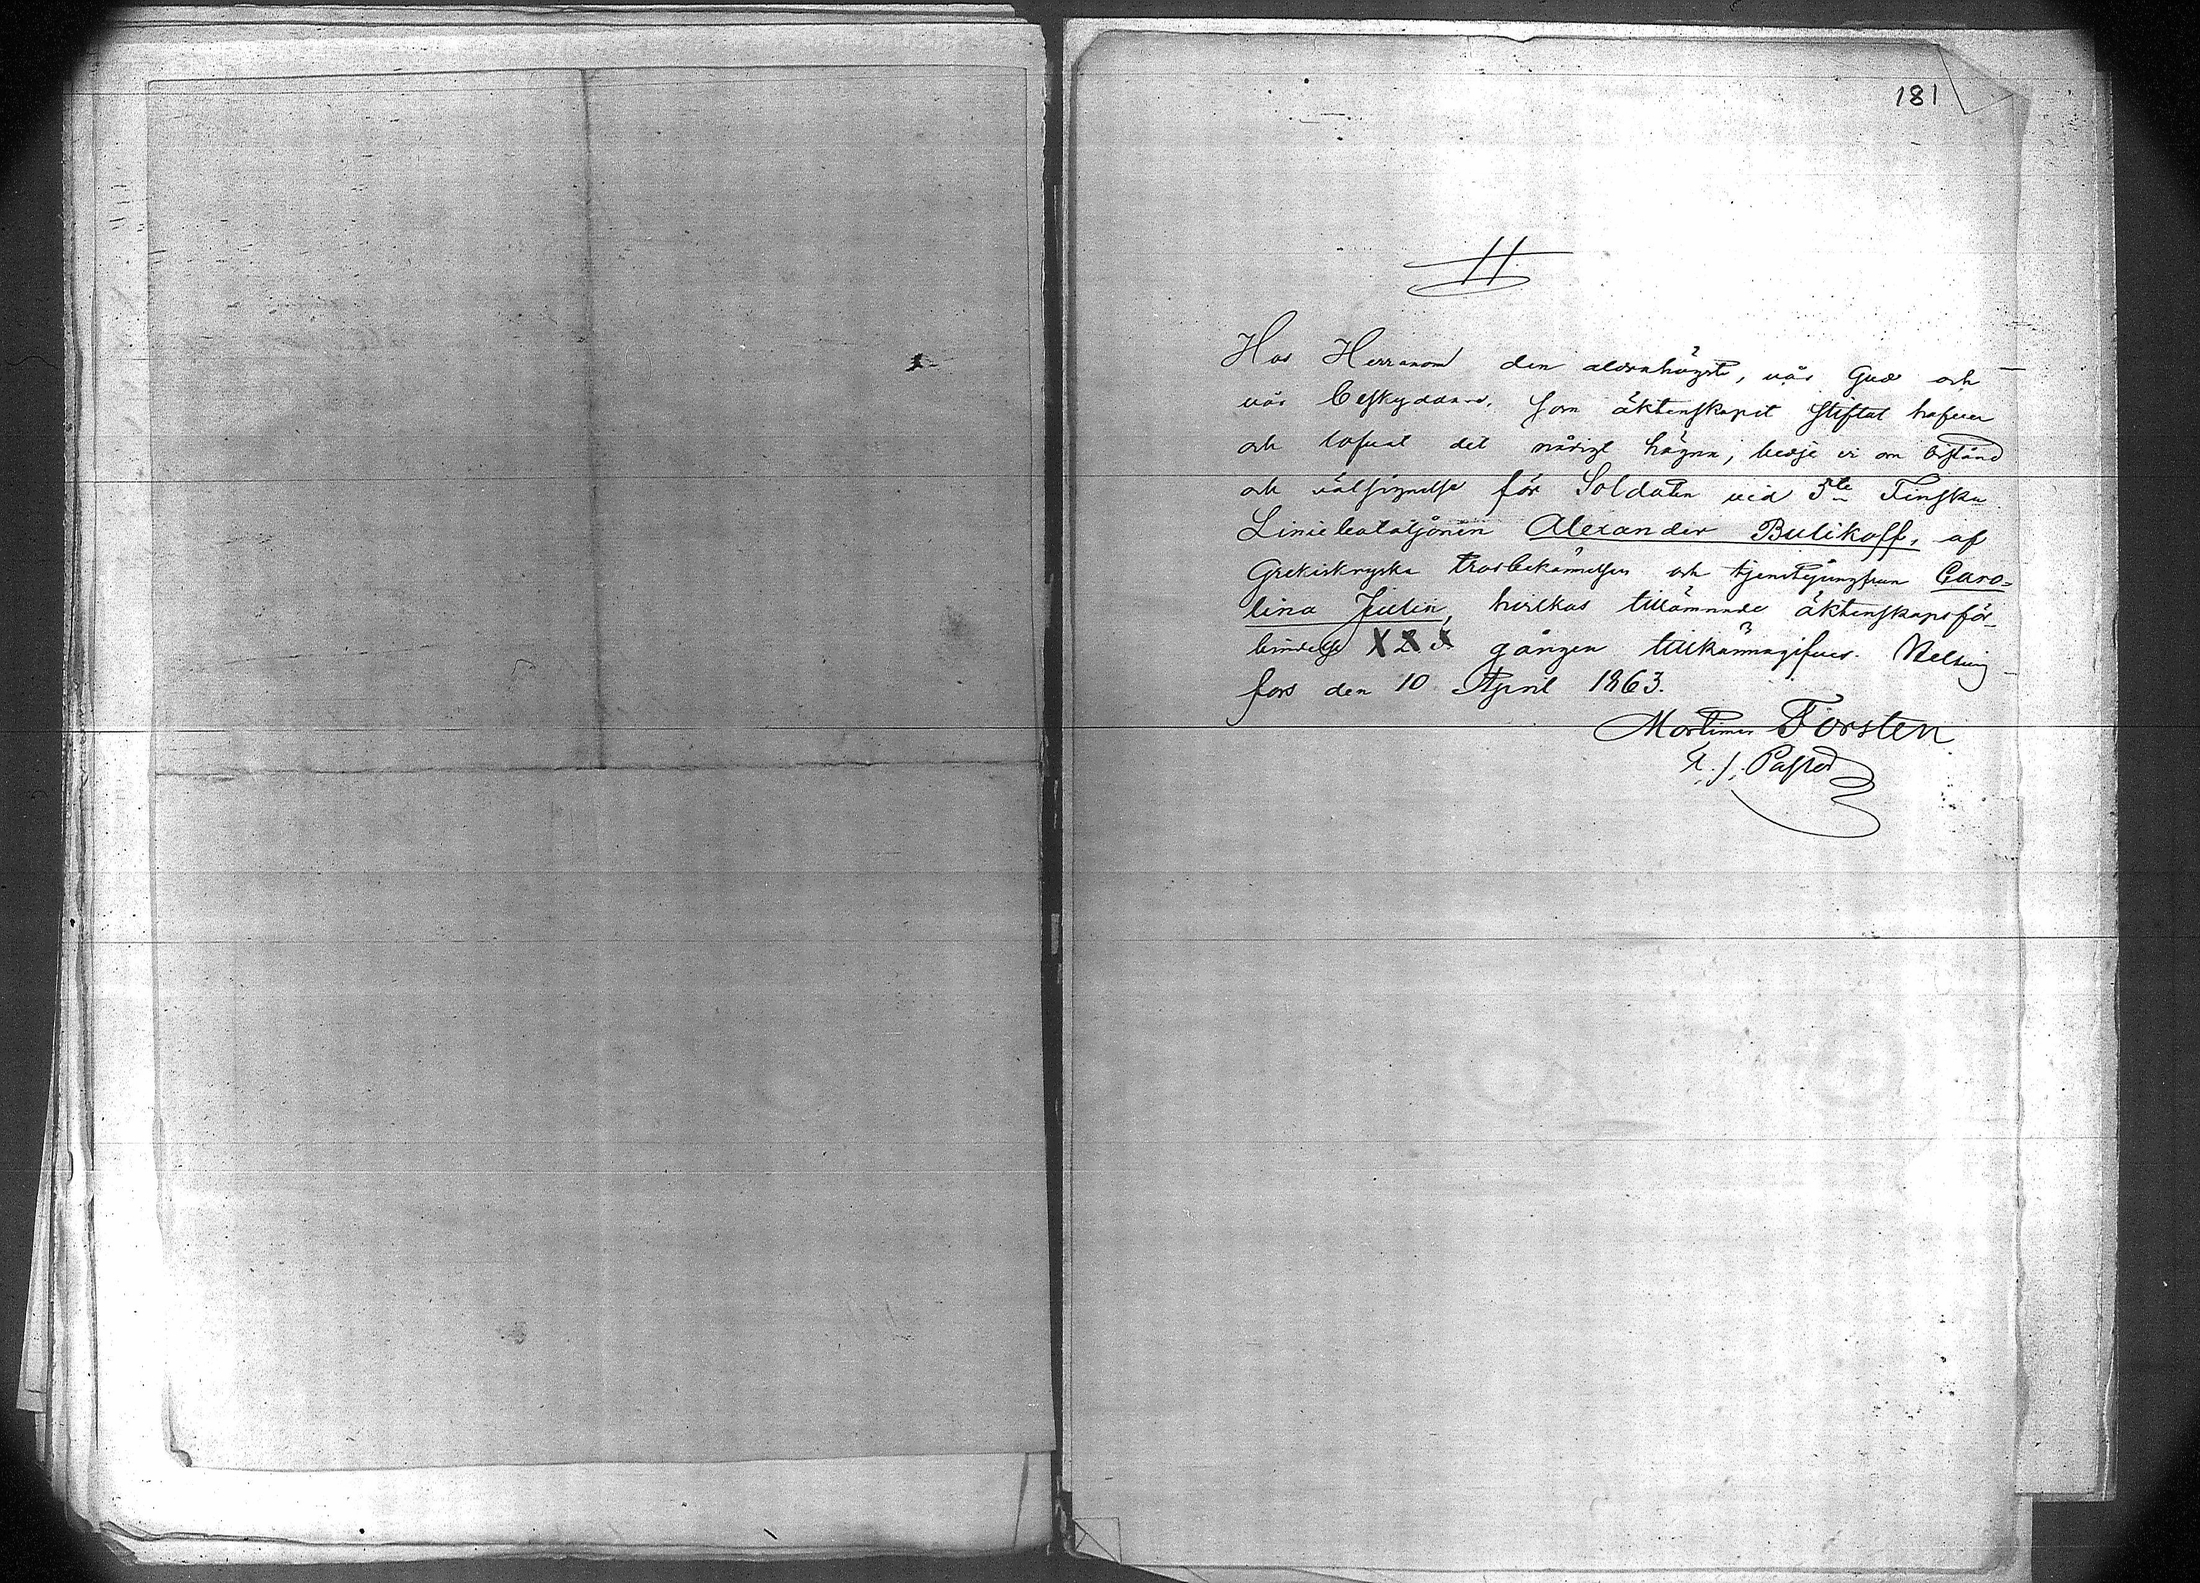 181
H.
Hos Herranom den aldrahögste, vår Gud och
vår beskyddare, som äktenskapet stiftat hafver
och lofvat det nådigt hägna, bedje vi om bistånd
och välsignelse för Soldaten vid 5te Finska
Liniebataljonen Alexander Bulikoff, af
Grekiskryska trosbekännelsen och tjenstejungfrun Caro=
lina Julin, hvilkas tillämnade äktenskapsför-
bindelse X 2 3 gången tillkännagifves. Helsing
fors den 10 April 1863.
Mortimer Forsten
Pastor